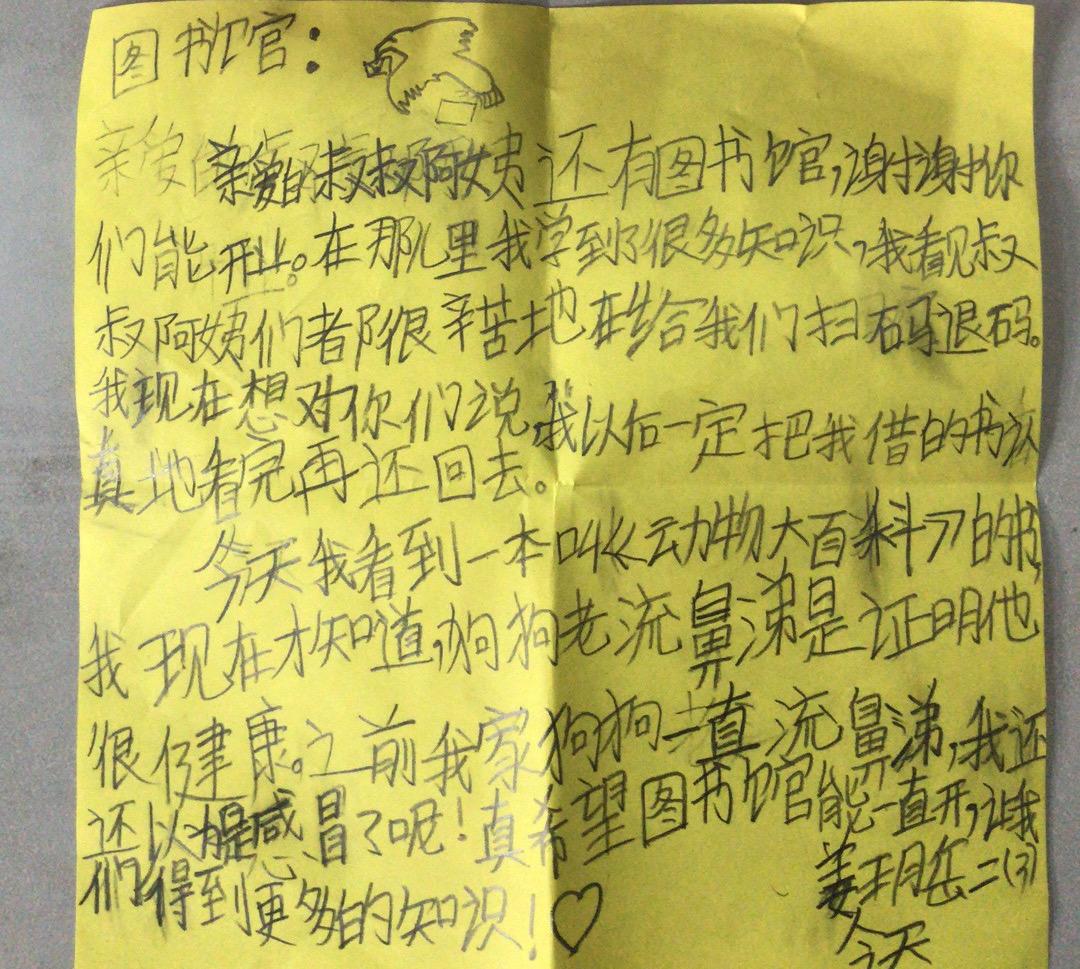 图书馆：
亲爱的叔叔阿姨还有图书馆，谢谢你
们能开业。在那儿里我学到了很多知识，我看见叔
叔阿姨们都很辛苦地在给我们扫码退码。
我现在想对你们说，我以后一定把我借的书认
真地看完再还回去。
今天我看到一本叫《动物大百科》的书，
我现在才知道，狗狗老流鼻涕是证明他
很健康。之前我家狗狗一直流鼻涕，我还
还以为是感冒了呢！真希望图书馆能一直开，让我
们得到更多的知识！
姜玥岳二(3)
今天